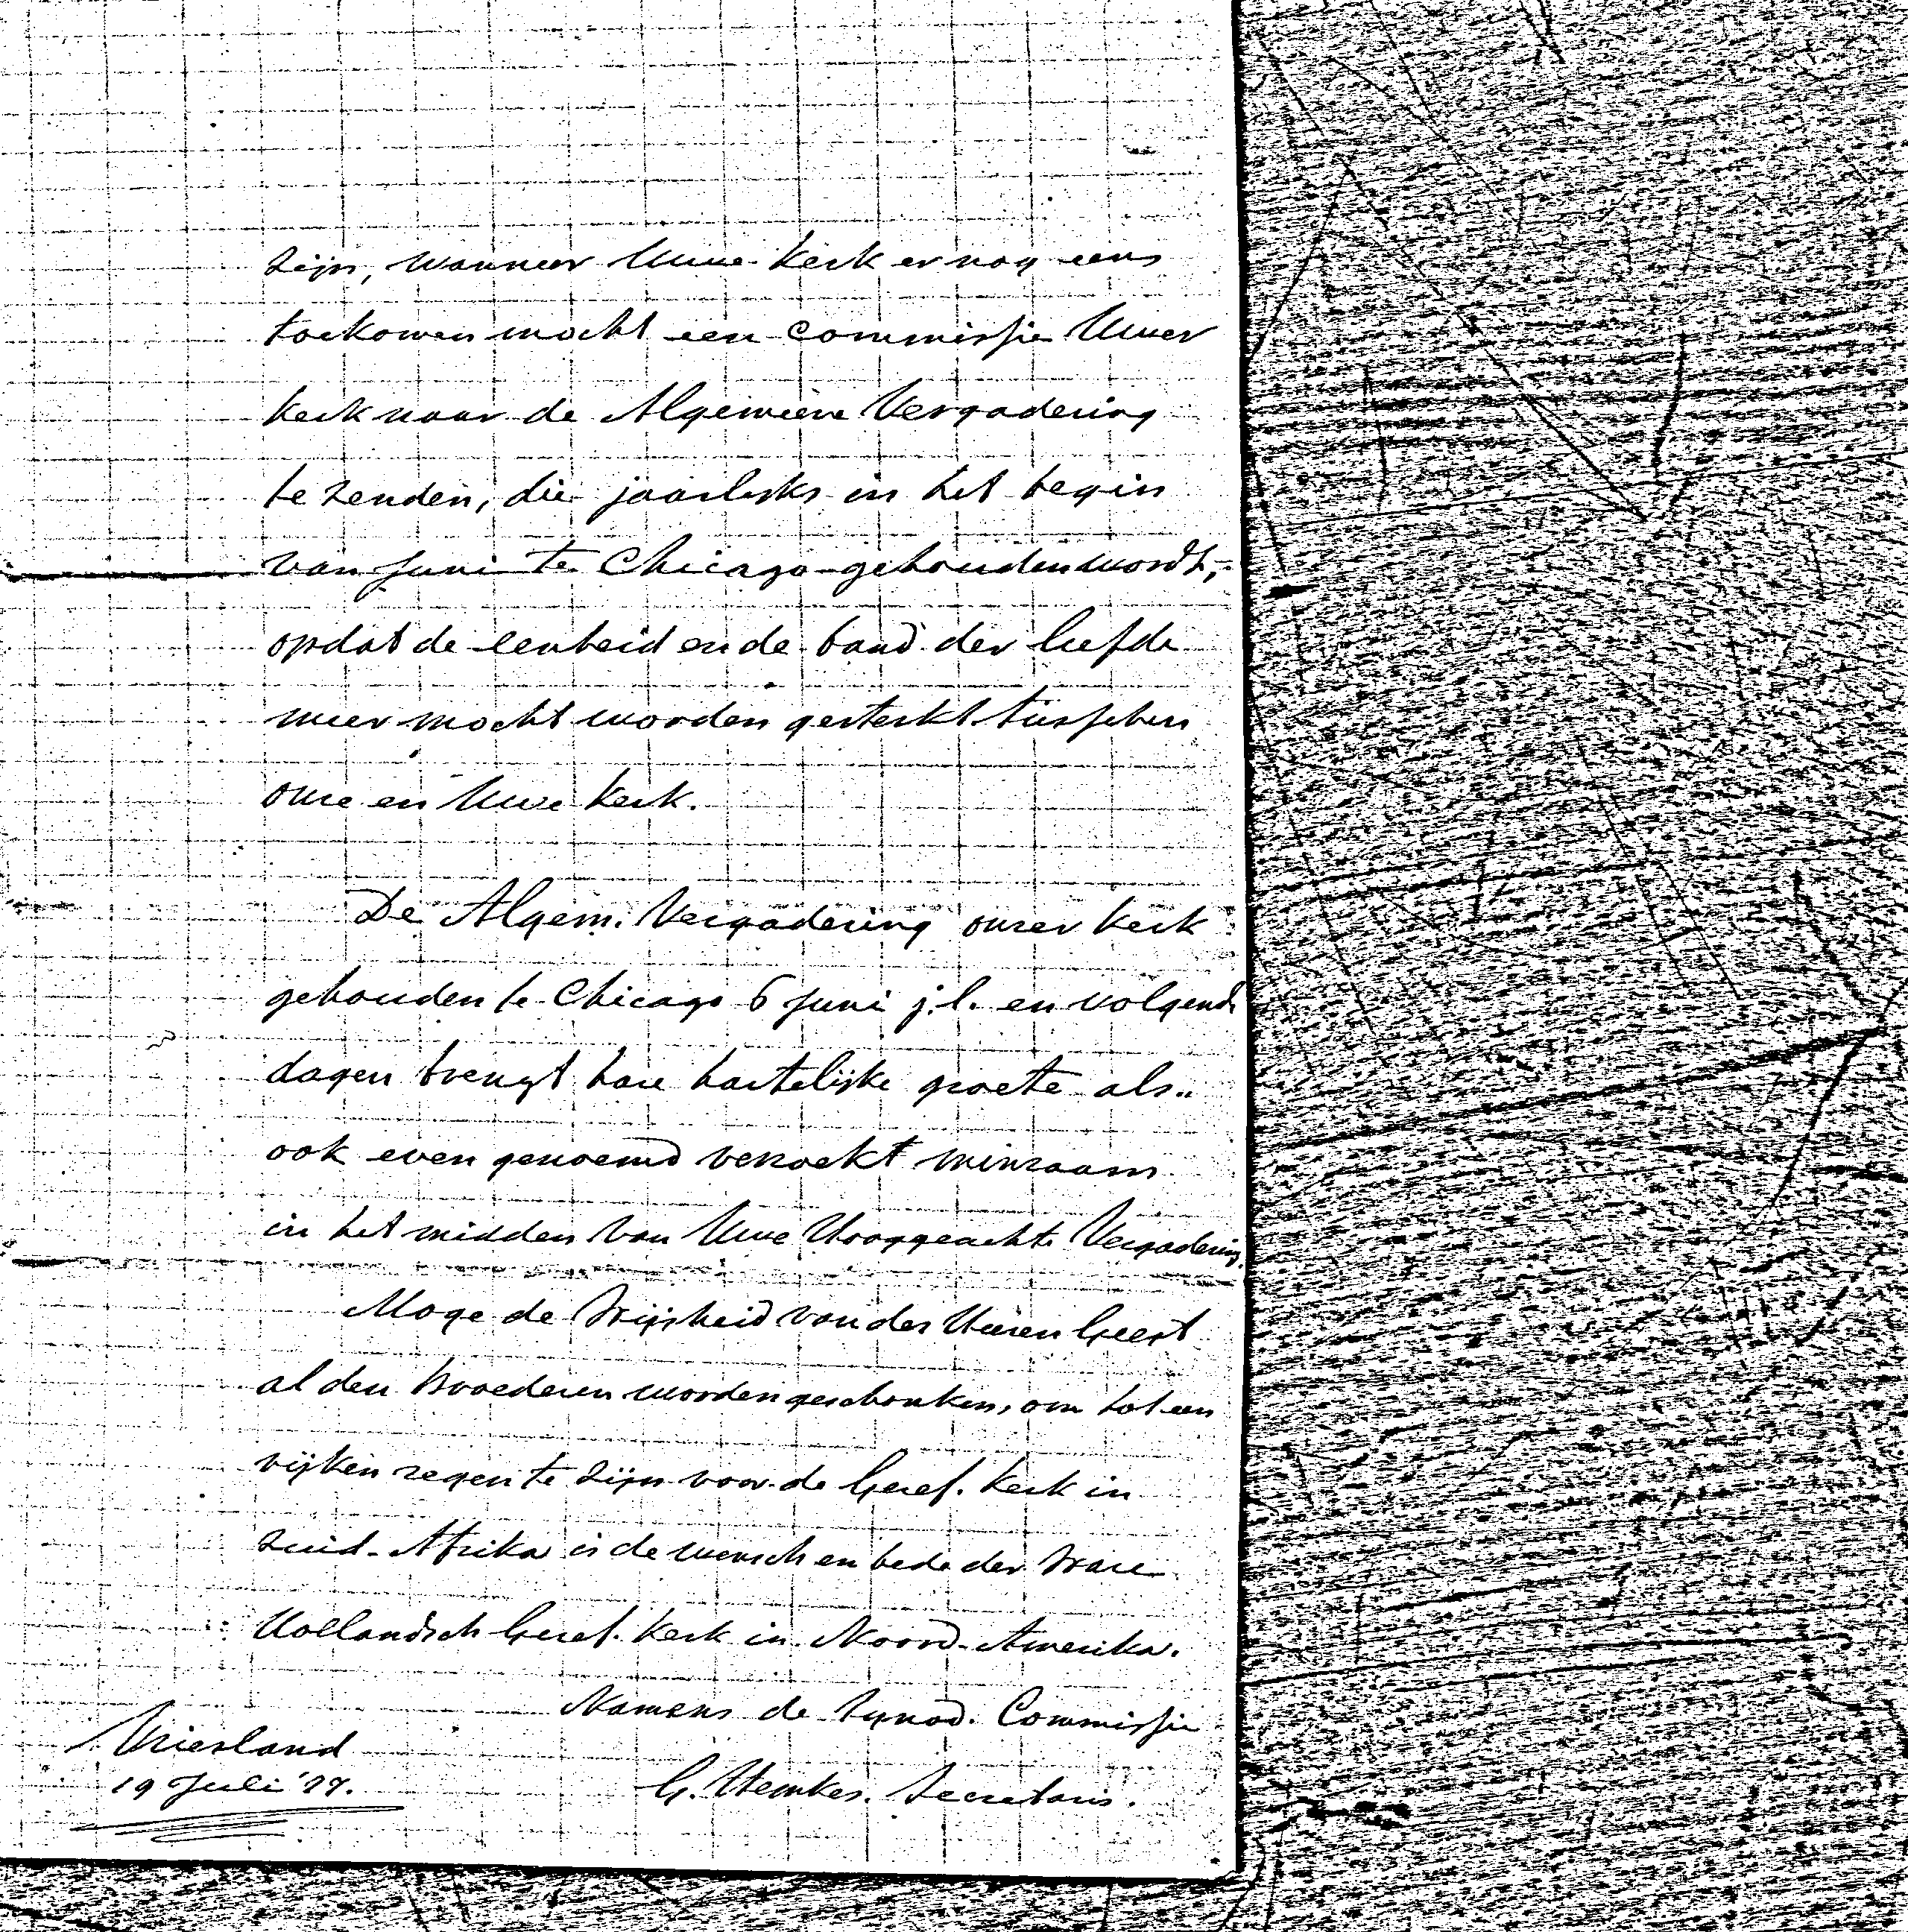 zijn, wanneer Uwe kerk er nog eens
toekomen mocht een commissie Uwer
kerk naar de Algemeene Vergadering
te zenden, die jaarlijks in het begin
van Juni te Chicago gehouden wordt,
opdat de eenheid en de band der liefde
meer mocht worden gesterkt tusschen
onze en Uwe kerk.
De Algem. Vergadering onzer kerk
gehouden te Chicago 6 Juni j.l. en volgende
dagen brengt hare hartelijke groete als
ook even genoemd verzoekt minzaam
in het midden van Uwe Hooggeachte Vergadering.
Moge de Wijsheid van des Heeren Geest
al den broederen worden geschonken, om tot een
rijken zegen te zijn voor de Geref. kerk in
Zuid-Afrika is de wensch en bede der Ware
Hollandsch Geref. kerk in Noord-Amerika.
Namens de Synod. Commissie
Vriesland
19 Juli '77.
G. Hemkes. Secretaris.